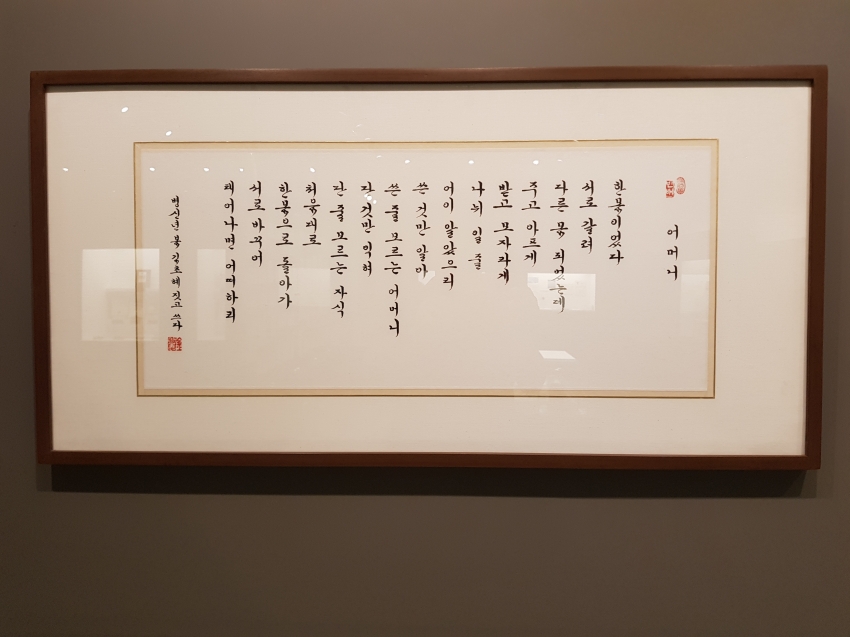 어머니
한몸이었다
서로 갈려
다른 몸 되었는데
주고 아프게
받고 모자라게
나뉘 일 줄
어이 알았으리
쓴 것만 알아
쓴 줄 모르는 어머니
단 것만 익혀
단 줄 모르는 자식
처음대로
한몸으로 돌아가
서로 바꾸어
태어나면 어떠하리
병신년 봄 김초혜 짓고 쓰다